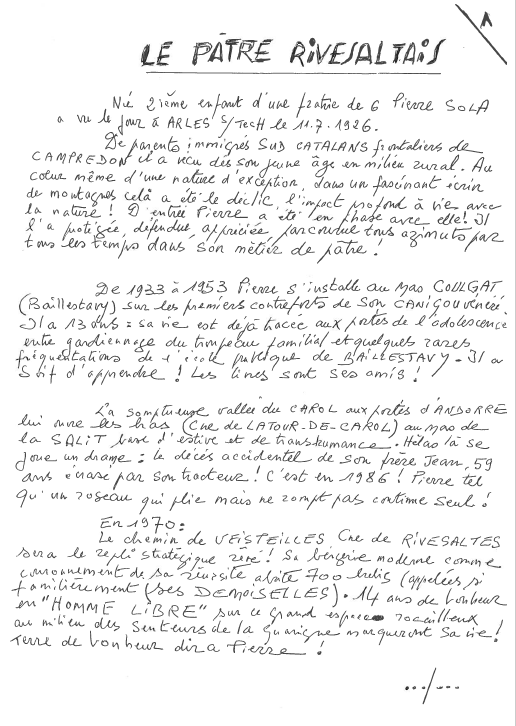 A
LE PÂTRE RIVESALTAIS
Né 2ième enfant d'une fratrie de 6 Pierre SOLA
a vu le jour à ARLES S/TECH le 11.7.1926.
De parents immigrés SUD CATALANS frontaliers de
CAMPREDON il a vécu dès son jeune âge en milieu rural. Au
cœur même d'une nature d'exception, dans un fascinant écrin
de montagnes celà a été le déclic, l'impact profond à vie avec
la nature! D'entrée Pierre a été en phase avec elle! Il
l'a protégée, défendue appréciée parcourue tous azimuts par
tous les temps dans son métier de pâtre!
De 1933 à 1953 Pierre s'installe au Mas COULGAT
(Baillestavy) sur les premiers contreforts de son CANIGOU vénéré.
Il a 13 ans = sa vie est déjà tracée aux portes de l'adolescence
entre gardiennage du troupeau familial et quelques rares
fréquentations de l'école publique de BAILLESTAVY - Il a
soif d'apprendre! Les livres sont ses amis!
La somptueuse vallée du CAROL aux portes d'ANDORRE
lui ouvre les bras (Cne de LATOUR-DE-CAROL) au mas de
la SALIT base d'estive et de transhumance. Hélas là se
joue un drame: le décès accidentel de son frère Jean, 59
ans écrasé par son tracteur! C'est en 1986! Pierre tel
qu'un roseau qui plie mais ne rompt pas continue seul!
En 1970:
Le chemin de VEISTEILLES Cne de RIVESALTES
sera le repli stratégique rêvé! Sa bergerie moderne comme
couronnement de sa réussite abrite 700 brebis (appelées si
familièrement (ses DEMOISELLES). 14 ans de bonheur
en "HOMME LIBRE" sur ce grand espace rocailleux
au milieu des senteurs de la guarigue marqueront sa vie!
Terre de bonheur dira Pierre!
.../...